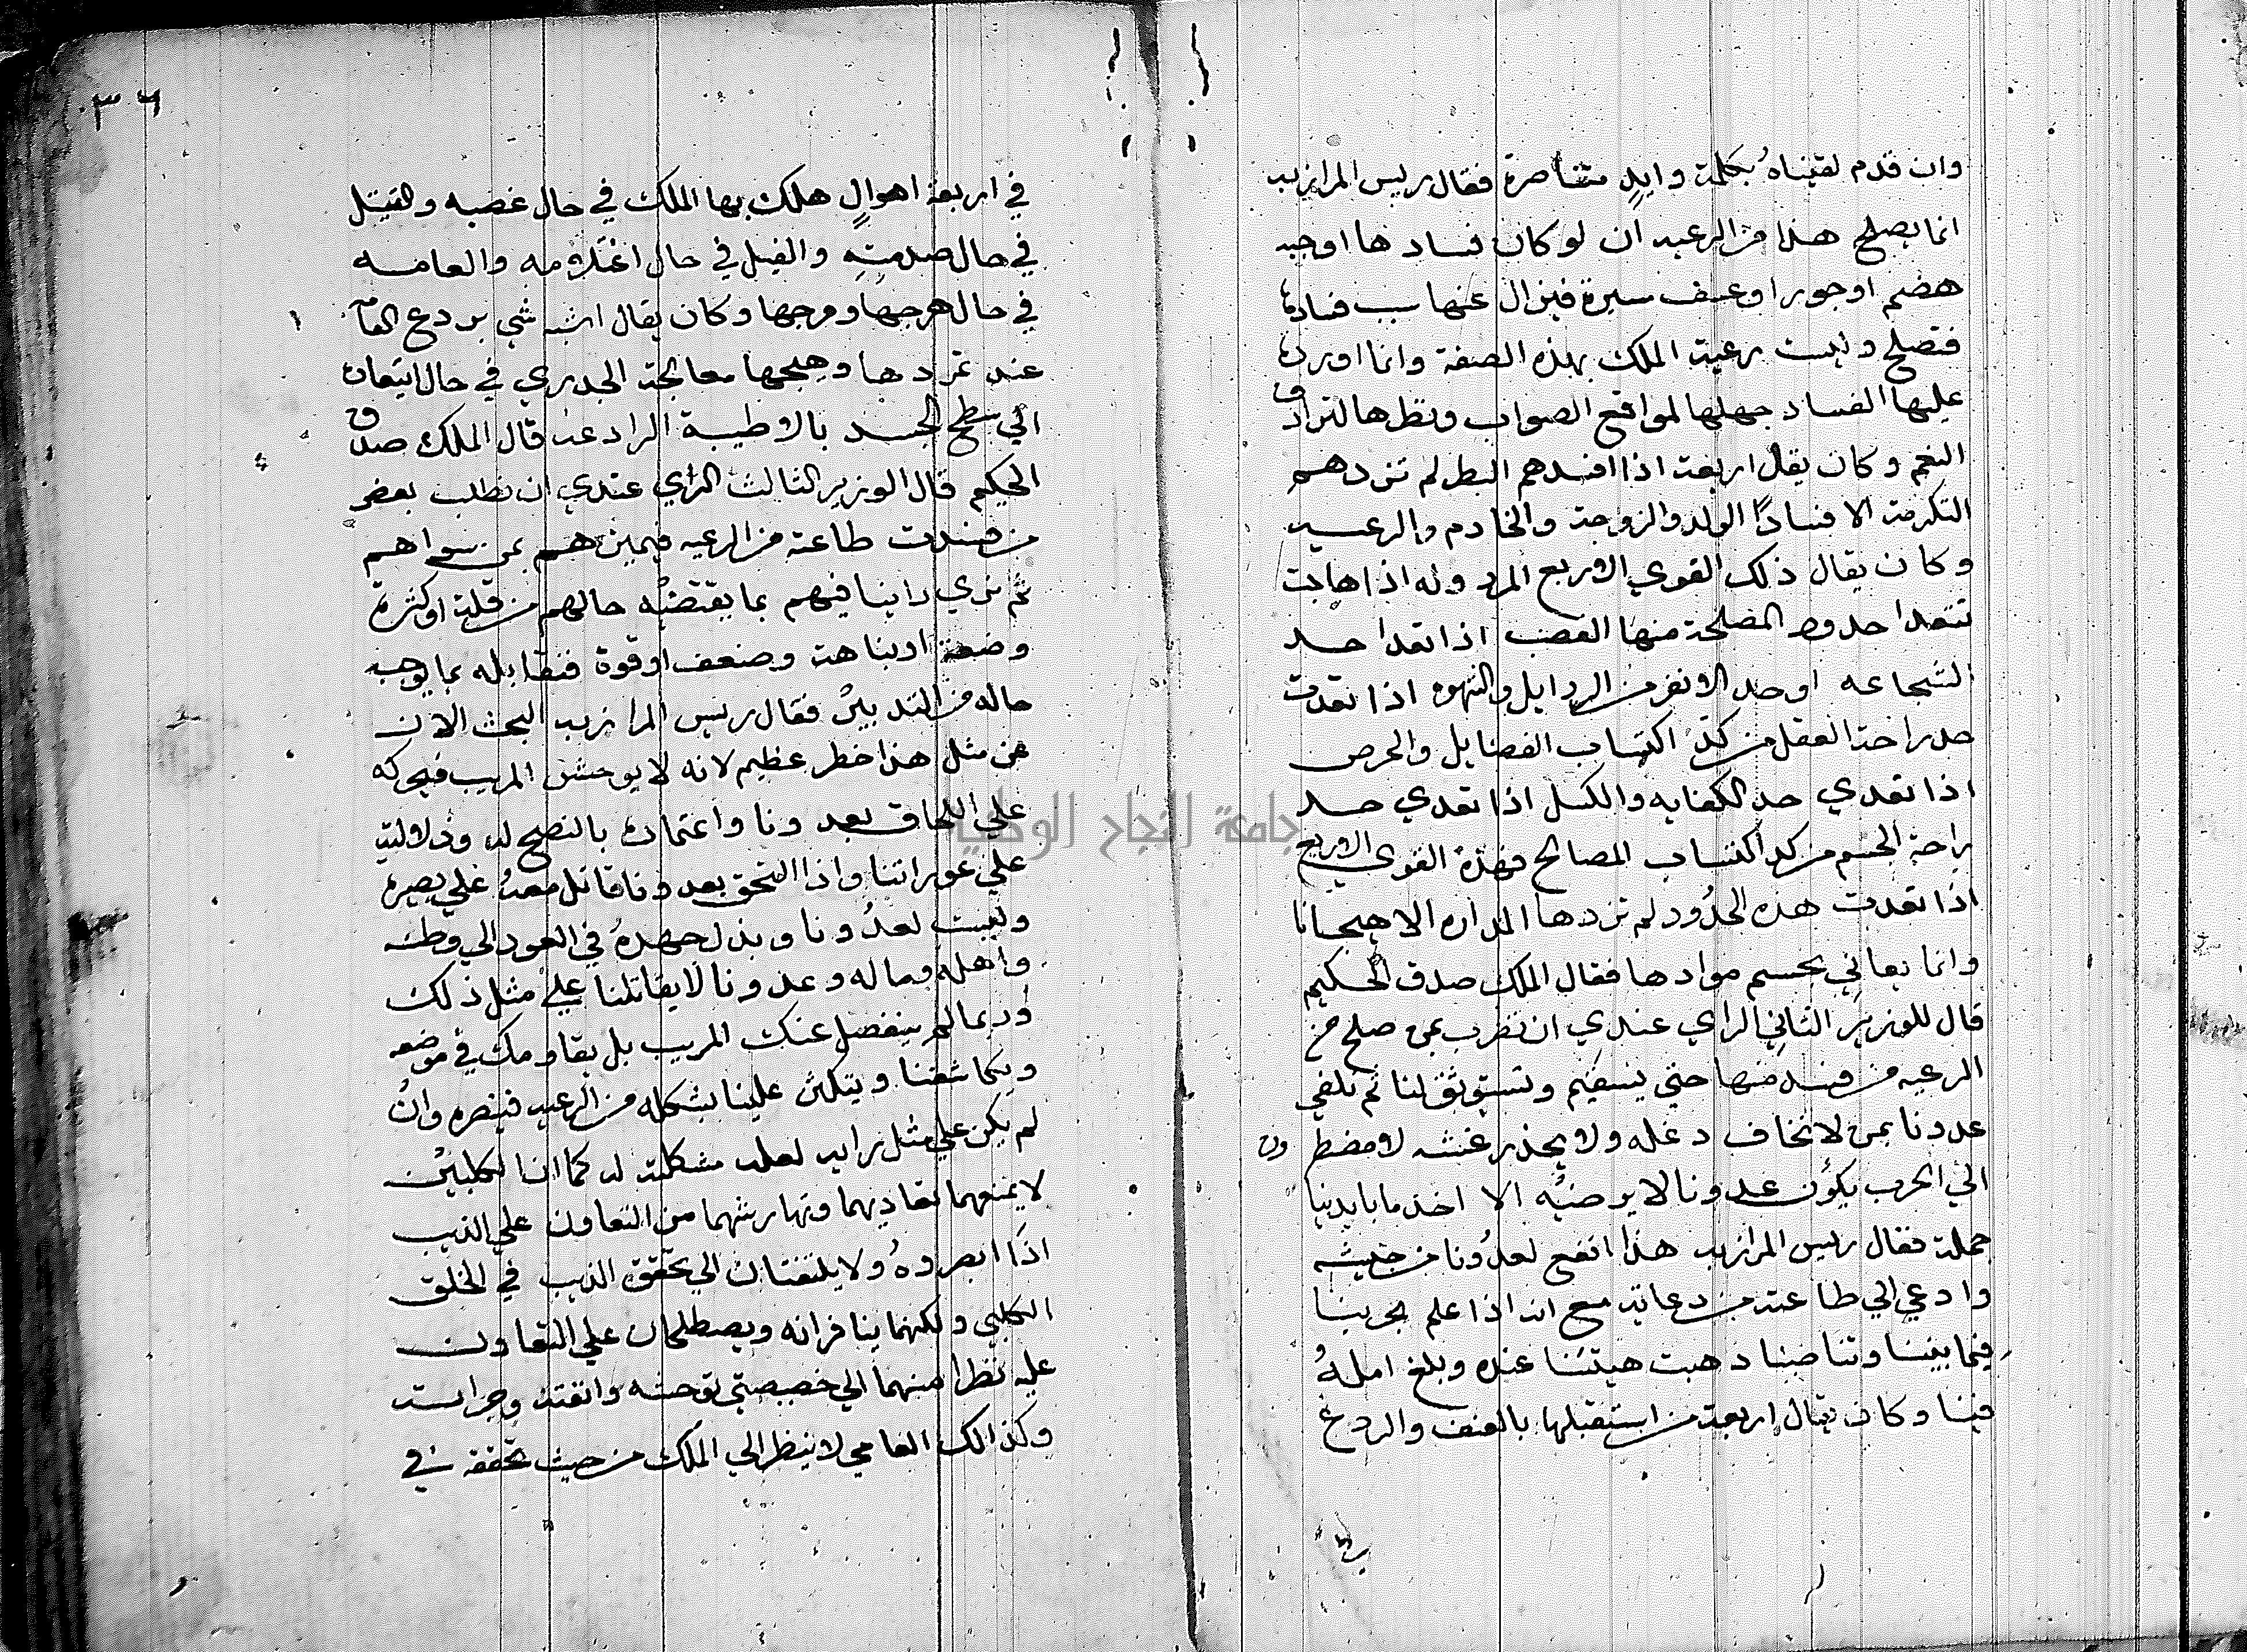 وان قدم لقيناه بكلمة وايد متناصرة فقال ريس المرازبه
انما يصلح هذا من الرعيه ان لو كان فسادها اوجبه
هضم او جور او عنف سيرة فيزال عنها سبب فسادها
فتصلح وليست رعية الملك بهذه الصفة وانما اورد
عليها الفساد جهلها لمواقع الصواب وبطرها لترادف
النعم وكان يقال اربعة اذا افسدهم البطر لم تزدهم
التكرمة الا فسادًا الولد والزوجة والخادم والرعيه
وكان يقال ذلك القوي الاربع المرد وله اذا هاجت
تتعدا حدود المصلحة منها الغضب اذا تعدا حد
الشجاعه او حد الانفة من الردايل والشهوه اذا تعدت
حد راحة العقل من كد اكتساب الفضايل والحرص
اذا تعدي حد الكفايه والكسل اذا تعدي حد
راحة الجسم من كد اكتساب المصالح فهذه القوي الاربع
اذا تعدت هذه الحدود لم تزدها المداراه الا هيجانا
وانما تعاني بحسم موادها فقال الملك صدق الحكيم
قال للوزير الثاني الراي عندي ان نضرب بمن صلح من
الرعيه من فسد منها حتي يستقيم وتستوثق لنا ثم نلقي
عدونا بمن لا نخاف دغله ولا يحذر غشه لا مضطرون
الي الحرب يكون عدونا لا يرضيه الا اخذ ما بايدينا
جملة فقال ريس المرازبه هذا انفع لعدونا من جيشه
وادعي الي طاعته من دعاته مع انه اذا علم بحربنا
فيما بيننا وتناصبنا ذهبت هيبتنا عنده وبلغ امله
فينا وكان يقال اربعة من استقبلها بالعنف والردع
٣٦
في اربعة اهوال هلك بها الملك في حال غضبه والقيل
في حال صدمته والفيل في حال اغتلامه والعامه
في حال هرجها ومرجها وكان يقال اشبه شي بردع العامة
عند تمردها وهيجها معالجة الجدري في حال ابتعاث
الي سطح الجسد بالاطيبة الرادعه قال الملك صدق
الحكيم قال الوزير الثالث الراي عندي ان نطلب بعض
من فسدت طاعته من الرعيه فيميزهم عمن سواهم
ثم نري راينا فيهم بما يقتضيه حالهم من قلة او كثرة
وضعة او نباهة وضعف او قوة فنقابله بما يوجبه
حاله من التدبير فقال ريس المرازبه البحث الان
عن مثل هذا خطر عظيم لانه لا يوحش المريب فيحركه
علي اللحاق بعدونا واعتماده بالنصح له ودلالته
علي عوراتنا واذا التحق بعدونا قاتل معه علي بصيرة
وليست لعدونا وبذل جهده في العود الي وطنه
واهله وماله وعدونا لا يقاتلنا علي مثل ذلك
وربما لم ينفصل عنك المريب بل يقاومك في موضعه
ويكاشفنا ويتكثر علينا بشكله من الرعيه فينصره وان
لم يكن علي مثل رايه لعله مشكلة له كما ان الكلبين
لا يمنعهما تعاديهما وتهارشهما من التعاون علي الذيب
اذا ابصروه ولا يلتفتان الي تحقق الذيب في الخلق
الكلبي ولكنهما ينافرانه ويصطلحان علي التعاون
عليه نظرا منهما الي خصيصتي توحشه وانفته وجراءته
وكذالك العامي لا ينظر الي الملك من حيث تحققه في